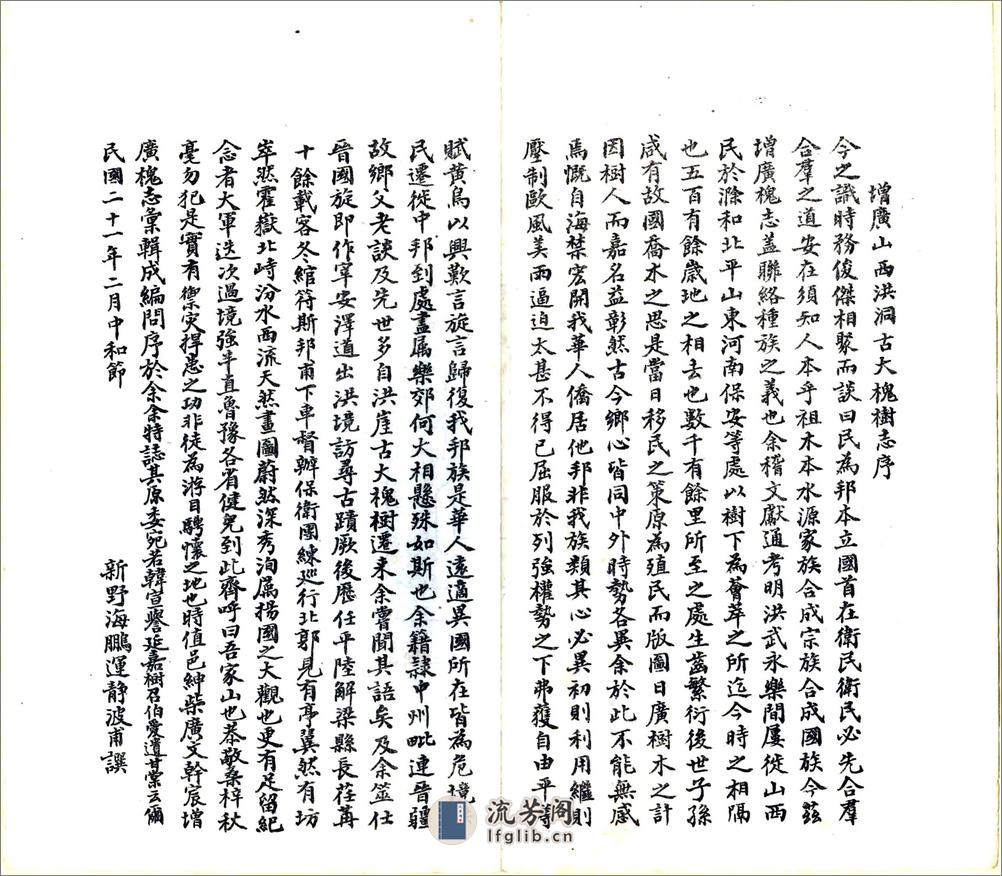 增廣山西洪洞古大槐樹志序
今之識時務俊傑相聚而談曰民為邦本立國首在衛民衛民必先合羣
合羣之道安在須知人本乎祖木本水源家族合成宗族合成國族今茲
增廣槐志蓋聯絡種族之義也余稽文獻通考明洪武永樂間屢徙山西
民於滁和北平山東河南保安等處以樹下為薈萃之所迄今時之相隔
也五百有餘歲地之相去也數千有餘里所至之處生齒繁衍後世子孫
咸有故國喬木之思是當日移民之策原為殖民而版圖日廣樹木之計
因樹人而嘉名益彰然古今鄉心皆同中外時勢各異余於此不能無感
焉慨自海禁宏開我華人僑居他邦非我族類其心必異初則利用繼則
壓制歐風美雨逼迫太甚不得已屈服於列強權勢之下弗獲自由平等
賦黃鳥以興歎言旋言歸復我邦族是華人遠適異國所在皆為危境吾
民遷徙中邦到處盡属樂郊何大相懸殊如斯也余籍隸中州毗連晉疆
故鄉父老談及先世多自洪崖古大槐樹遷来余嘗聞其語矣及余筮仕
晉國旋即作宰安澤道出洪境訪尋古蹟厥後歷任平陸解梁縣長荏苒
十餘載客冬綰符斯邦甫下車督辦保衛團練巡行北郭見有亭翼然有坊
崒然霍嶽北峙汾水西流天然畫圖蔚然深秀洵属揚國之大觀也更有足留紀
念者大軍迭次過境強半直魯豫各省健兒到此齊呼曰吾家山也恭敬桑梓秋
毫勿犯是實有禦灾捍患之功非徒為游目騁懷之地也時值邑紳柴廣文幹宸增
廣槐志彙輯成編問序於余余特誌其原委宛若韓宣譽延嘉樹召伯愛遺甘棠云爾
民國二十一年二月中和節
新野海鵬運靜波甫譔
流芳阁
lfglib.cn